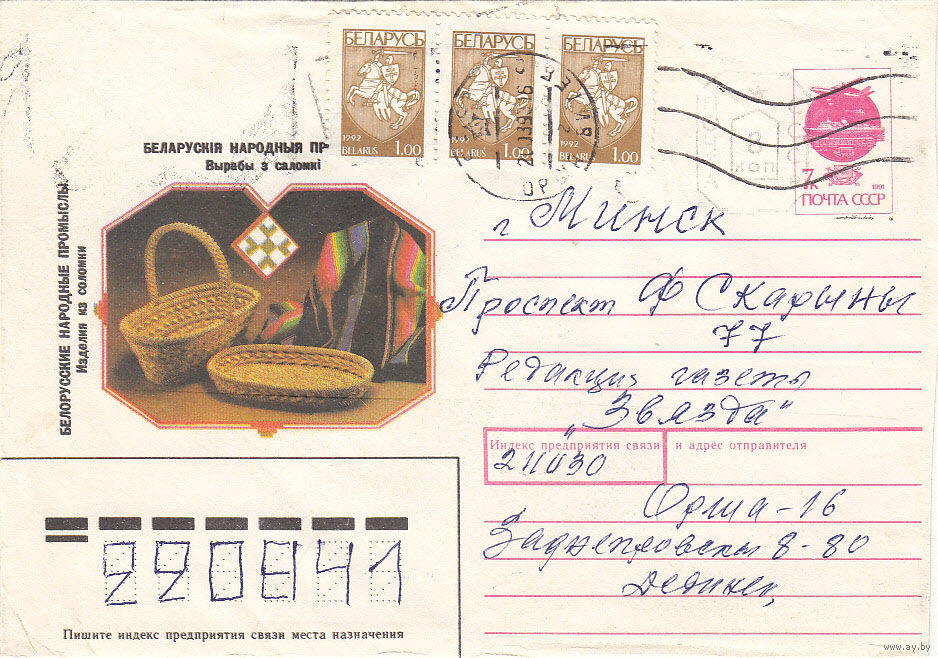 БЕЛАРУСЬ БЕЛАРУСЬ БЕЛАРУСЬ
1992 1992 1992
BELARUS 1.00 BELARUS 1.00 BELARUS 1.00
8
коп
7к
1991
ПОЧТА СССР
БЕЛАРУСКІЯ НАРОДНЫЯ ПР
Вырабы з саломкі
БЕЛОРУССКИЕ НАРОДНЫЕ ПРОМЫСЛЫ
Изделия из соломки
г Минск
Проспект Ф Скарыны
77
Редакция газеты
„Звязда"
Индекс предприятия связи и адрес отправителя
211030
Орша-16
Заднепровская 8-80
220841
Пишите индекс предприятия связи места назначения
www.ay.by